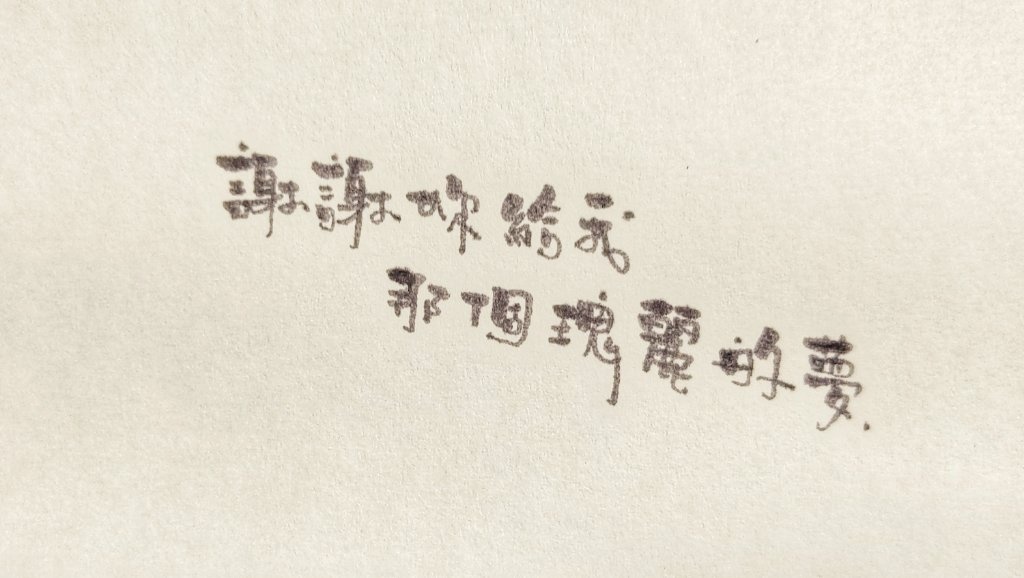 謝謝妳給我
那個瑰麗的夢.